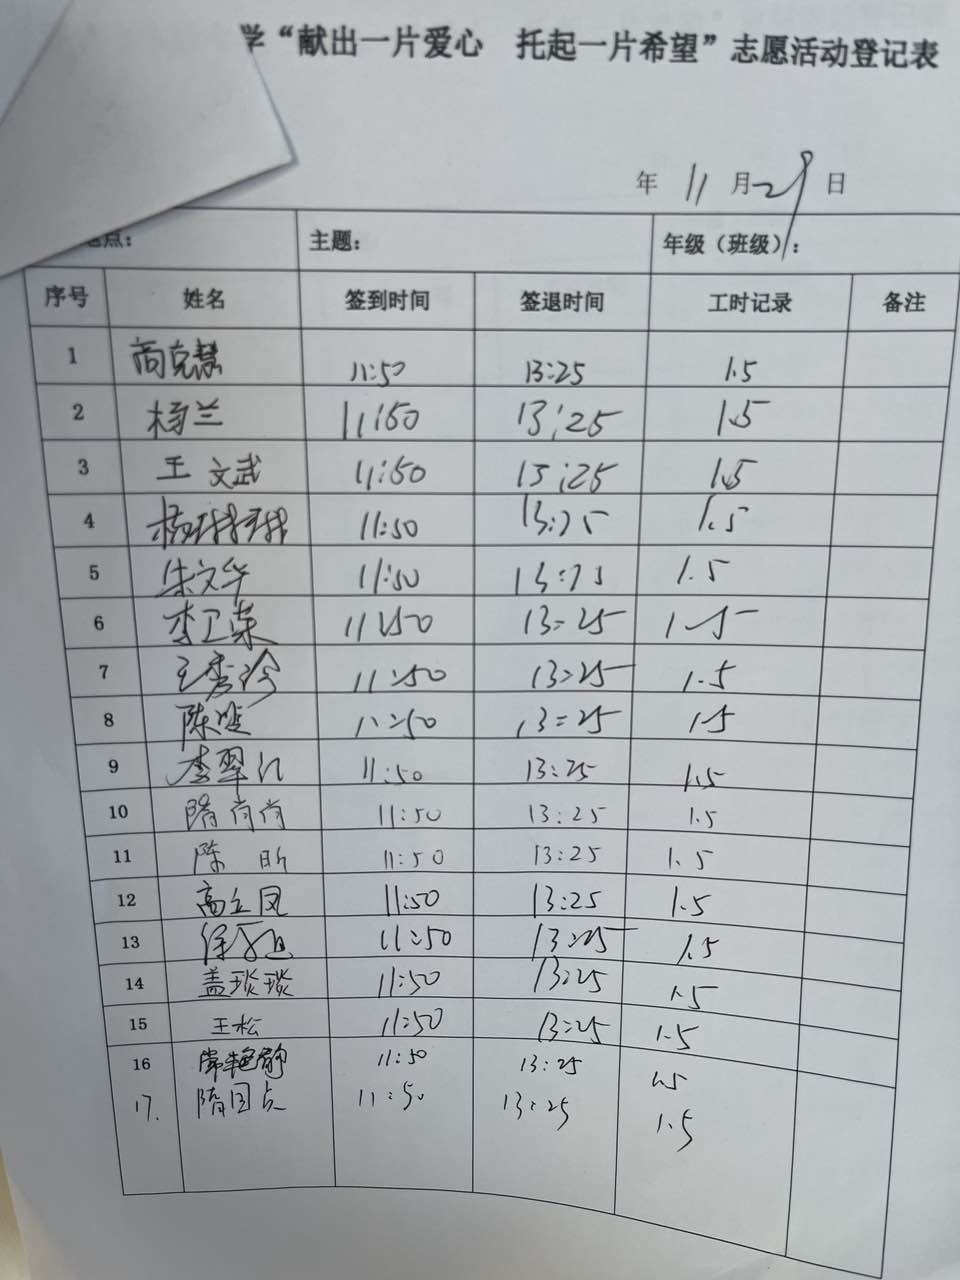 学“献出一片爱心 托起一片希望”志愿活动登记表
年 11 月 29 日
点： 主题： 年级（班级）：
序号 姓名 签到时间 签退时间 工时记录 备注
1 11:50 13:25 1.5
2 杨兰 11:50 13:25 1.5
3 王文武 11:50 13:25 1.5
4 杨珠珠 11:50 13:25 1.5
5 朱文华 11:50 13:25 1.5
6 李卫荣 11:50 13:25 1.5
7 王秀玲 11:50 13:25 1.5
8 陈 11:50 13:25 1.5
9 李翠红 11:50 13:25 1.5
10 隋肖肖 11:50 13:25 1.5
11 陈昕 11:50 13:25 1.5
12 高立凤 11:50 13:25 1.5
13 徐 11:50 13:25 1.5
14 盖琰琰 11:50 13:25 1.5
15 王松 11:50 13:25 1.5
16 常艳静 11:50 13:25 1.5
17. 隋国贞 11:50 13:25 1.5